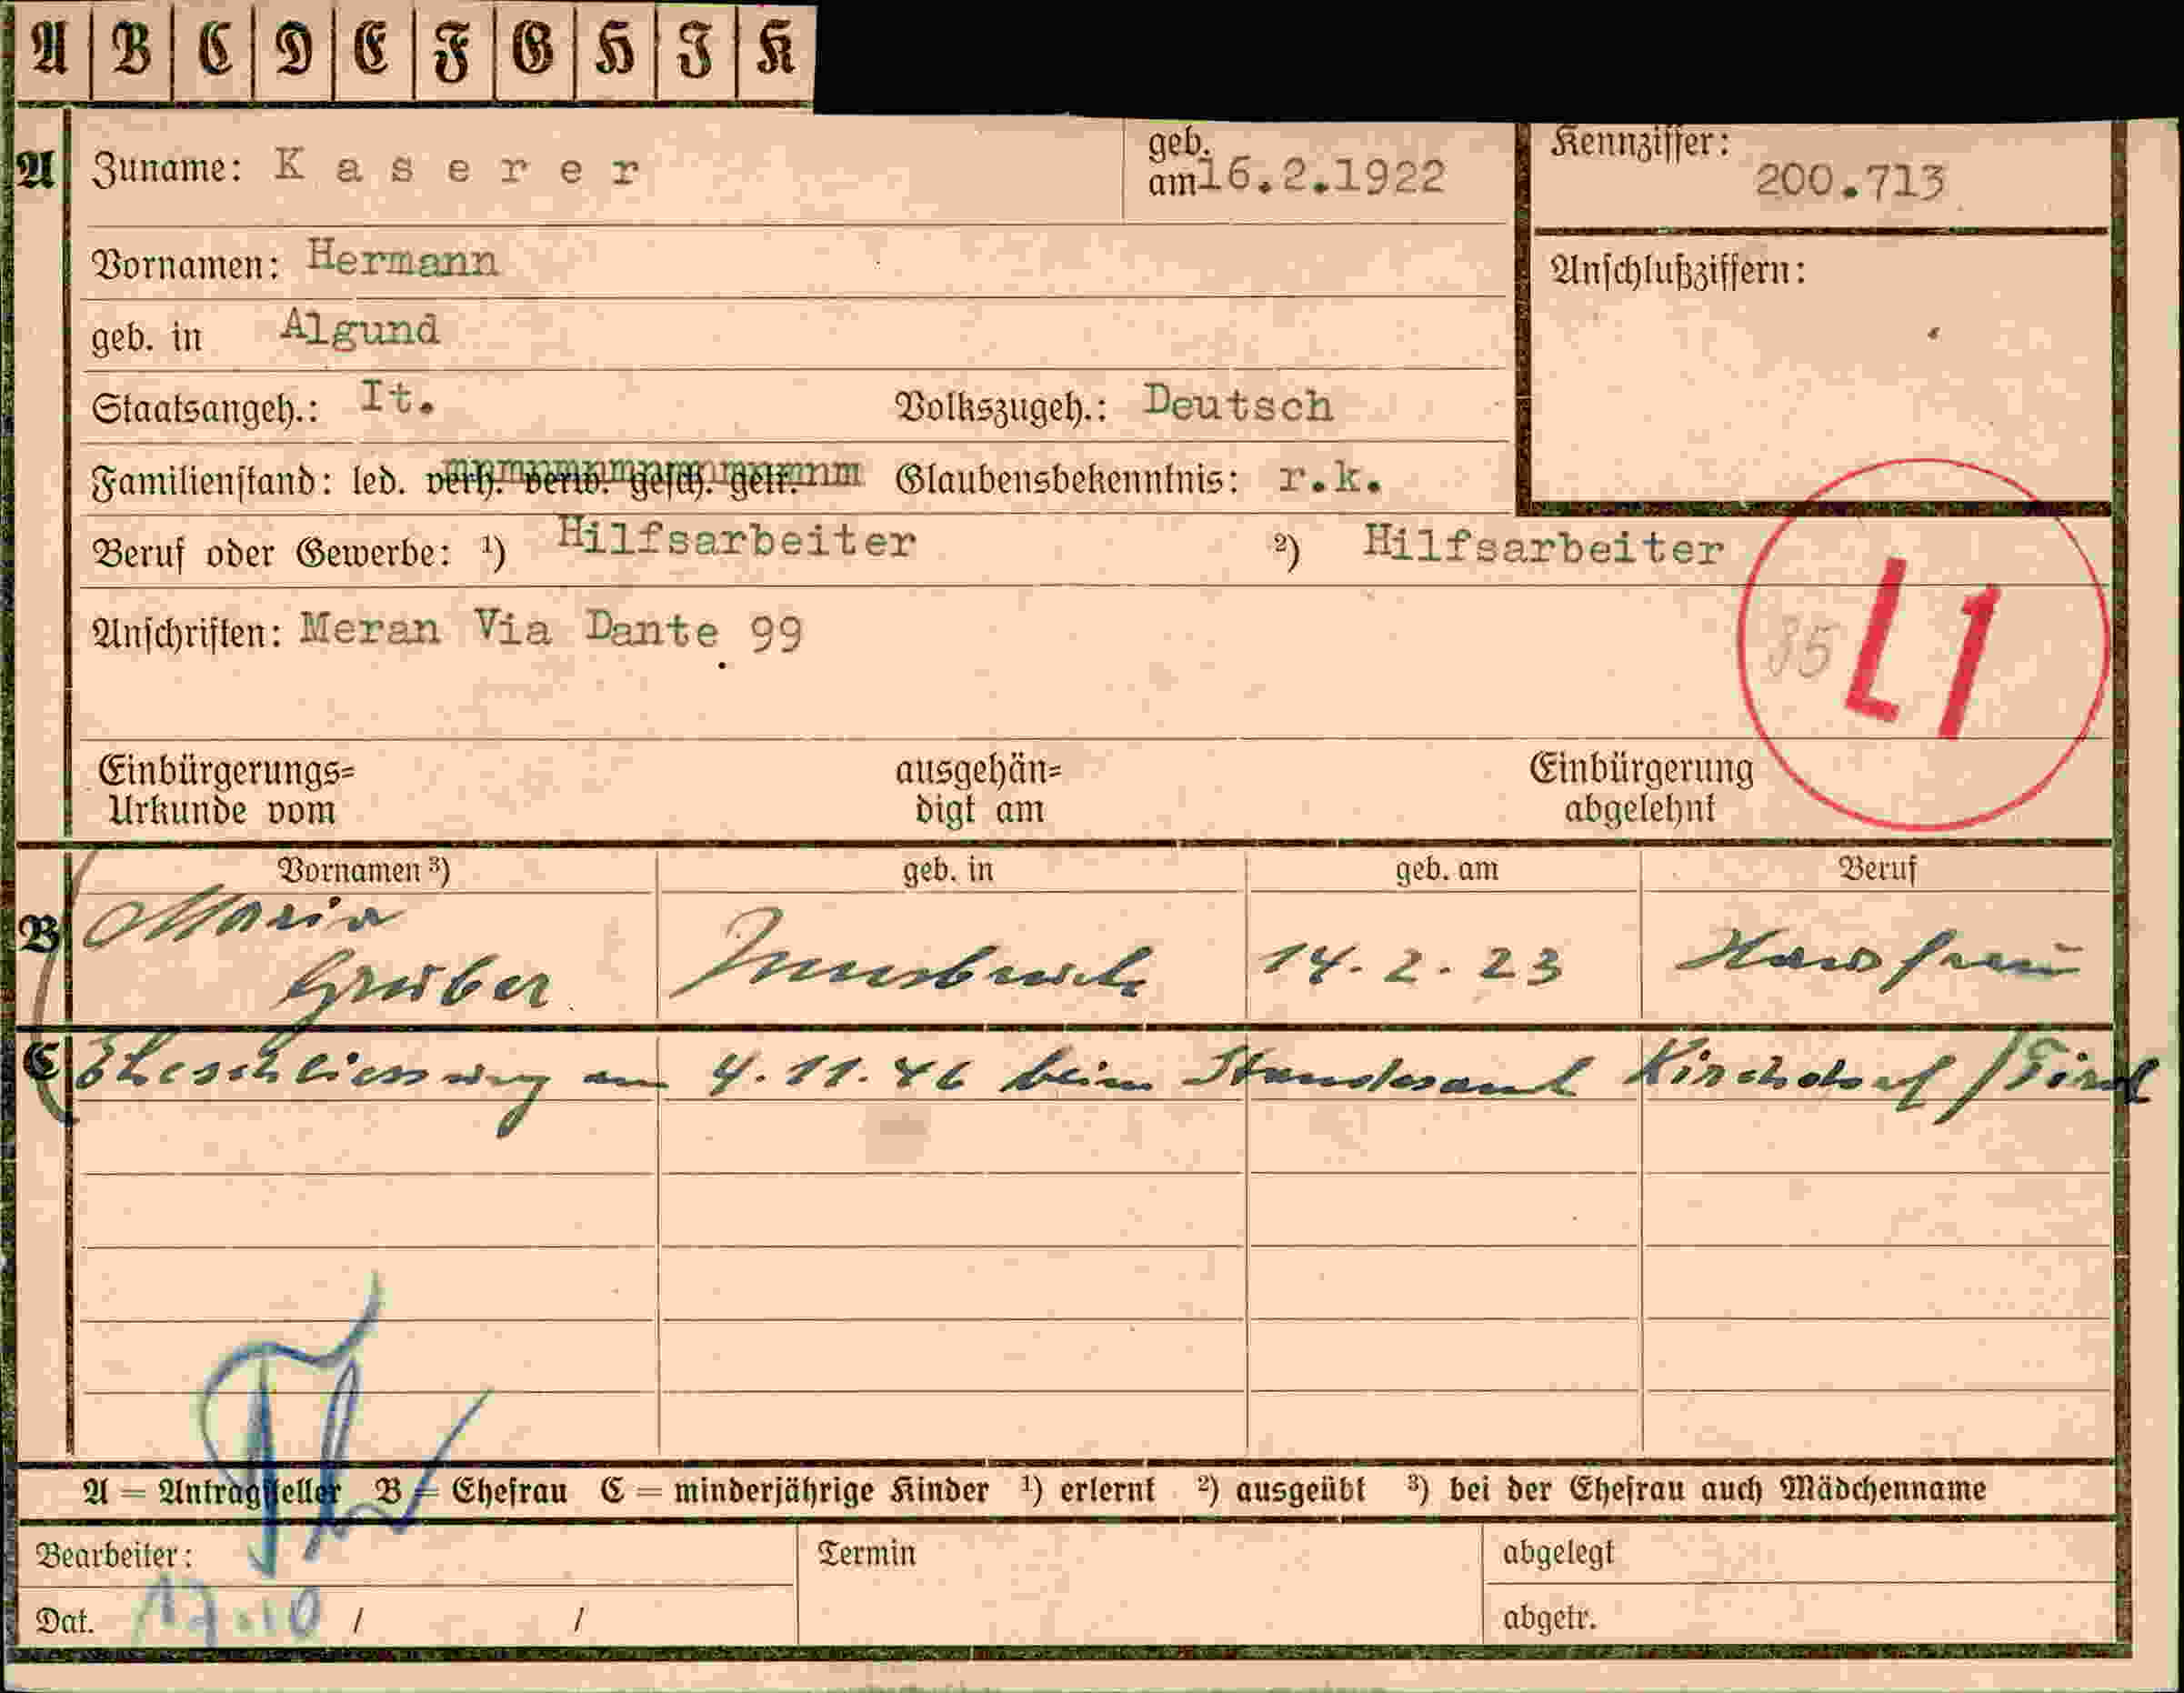 A B C D E F G H I K
A Zuname: Kaserer geb. am 16.2.1922 Kennziffer: 200.713
Vornamen: Hermann Anschlußziffern:
geb. in Algund
Staatsangeh.: It. Volkszugeh.: Deutsch
Familienstand: led. verh. verw. gesch. getr. Glaubensbekenntnis: r.k.
Beruf oder Gewerbe: ¹) Hilfsarbeiter ²) Hilfsarbeiter
Anschriften: Meran Via Dante 99
35 L1
Einbürgerungs= ausgehän= Einbürgerung
Urkunde vom digt am abgelehnt
Vornamen ³) geb. in geb. am Beruf
B Maria Gruber Innsbruck 14.2.23 Hausfrau
C Eheschliessung am 4.11.46 beim Standesamt Kirchdorf/Tirol
A = Antragsteller B = Ehefrau C = minderjährige Kinder ¹) erlernt ²) ausgeübt ³) bei der Ehefrau auch Mädchenname
Bearbeiter: Termin abgelegt
Dat. 17.10 / / abgetr.